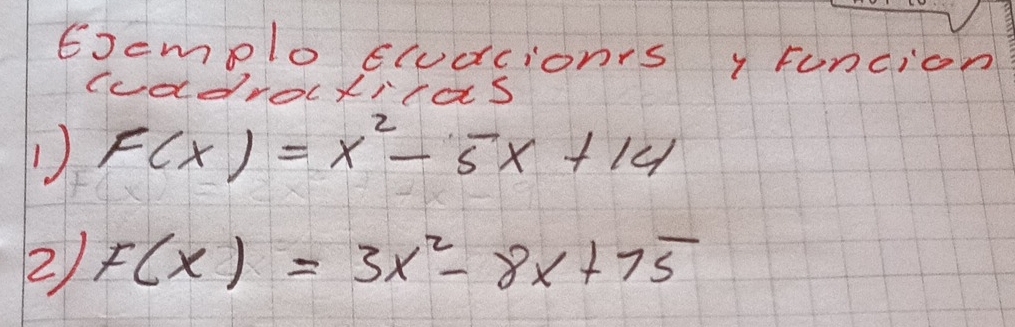 Ejemplo Ecuaciones y Funcion
Cuadraticas
1) F(x) = x² - 5x + 14
2) F(x) = 3x² - 8x + 75